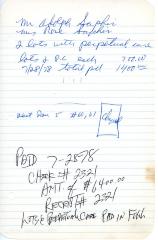 Mr Adolph Saphir
Mrs Rose Saphir
2 lots with perpetual care
lots 2 DC each 700.00
7/28/78 total pd 1400.00
next Dan 5 #
PAID 7-28-78
CHECK # 2321
AMT. $ 1400.00
RECEIPT # 2321
LOTS & PERPETUAL CARE PAID IN FULL